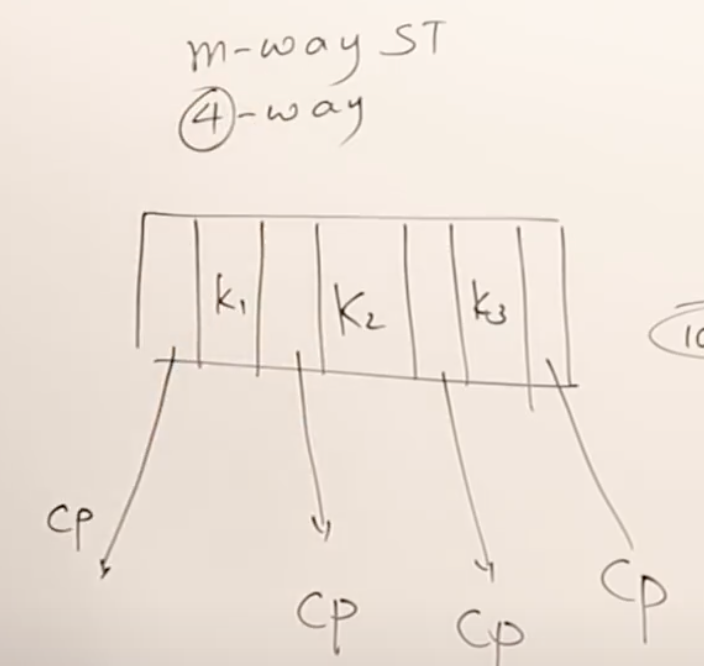 m-way ST
④-way
k₁ K₂ k₃
CP
CP
CP
CP